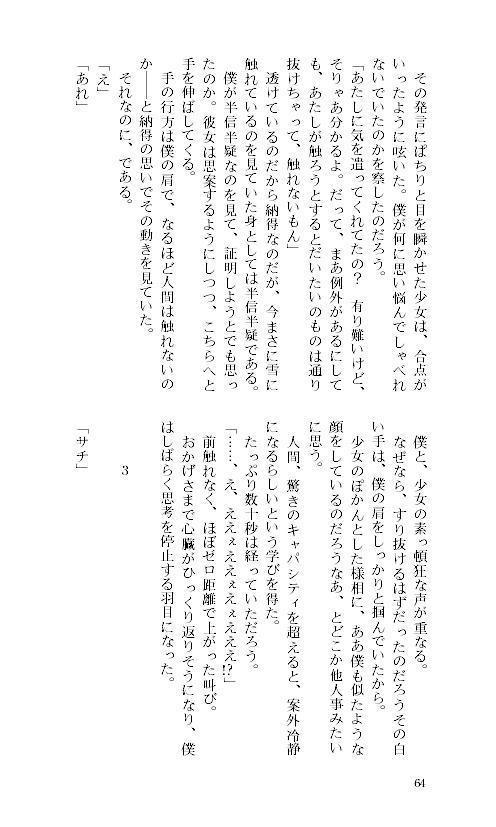 その発言にぱちりと目を瞬かせた少女は、合点が
いったように呟いた。僕が何に思い悩んでしゃべれ
ないでいたのかを察したのだろう。
「あたしに気を遣ってくれてたの？　有り難いけど、
そりゃあ分かるよ。だって、まあ例外があるにして
も、あたしが触ろうとするとだいたいのものは通り
抜けちゃって、触れないもん」
透けているのだから納得なのだが、今まさに雪に
触れているのを見ていた身としては半信半疑である。
僕が半信半疑なのを見て、証明しようとでも思っ
たのか。彼女は思案するようにしつつ、こちらへと
手を伸ばしてくる。
手の行方は僕の肩で、なるほど人間は触れないの
か――と納得の思いでその動きを見ていた。
それなのに、である。
「え」
「あれ」
僕と、少女の素っ頓狂な声が重なる。
なぜなら、すり抜けるはずだったのだろうその白
い手は、僕の肩をしっかりと掴んでいたから。
少女のぽかんとした様相に、ああ僕も似たような
顔をしているのだろうなあ、とどこか他人事みたい
に思う。
人間、驚きのキャパシティを超えると、案外冷静
になるらしいという学びを得た。
たっぷり数十秒は経っていただろう。
「……、え、ええぇええぇぇえええ!?」
前触れなく、ほぼゼロ距離で上がった叫び。
おかげさまで心臓がひっくり返りそうになり、僕
はしばらく思考を停止する羽目になった。
3
「サチ」
64